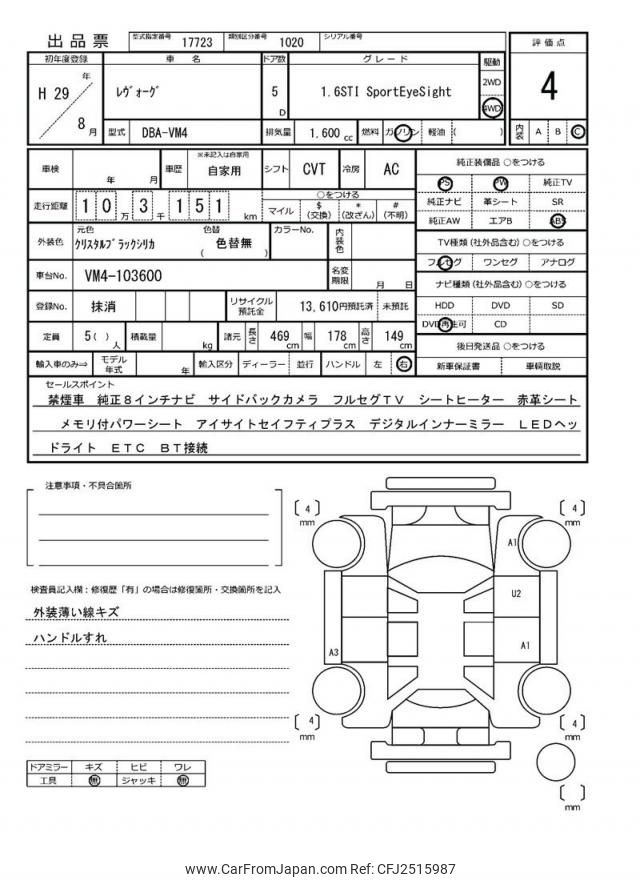 出品票 型式指定番号 17723 類別区分番号 1020 シリアル番号
初年度登録 車 名 ドア数 グレード 駆動 評価点
H 29 年 8 月 レヴォーグ 5 D 1.6STI SportEyeSight 2WD 4WD 4
型式 DBA-VM4 排気量 1.600 cc 燃料 ガソリン 軽油 ( ) 内装 A B C
車検 年 月 車歴 ※未記入は自家用 自家用 シフト CVT 冷房 AC
走行距離 10万3千151 km ○をつける マイル $ (交換) * (改ざん) # (不明)
外装色 元色 クリスタルブラックシリカ 色替 ( 色替無 ) カラーNo. 内装色
車台No. VM4-103600 名変期限 月 日
登録No. 抹消 リサイクル預託金 13,610円預託済 未預託
定員 5( ) 人 積載量 kg 諸元 長さ 469 cm 幅 178 cm 高さ 149 cm
輸入車のみ⇒ モデル年式 年 輸入区分 ディーラー 並行 ハンドル 左 右
純正装備品 ○をつける
PS PW 純正TV
純正ナビ 革シート SR
純正AW エアB ABS
TV種類(社外品含む) ○をつける
フルセグ ワンセグ アナログ
ナビ種類(社外品含む) ○をつける
HDD DVD SD
DVD再生可 CD
後日発送品 ○をつける
新車保証書 車輌取説
セールスポイント
禁煙車 純正8インチナビ サイドバックカメラ フルセグTV シートヒーター 赤革シート
メモリ付パワーシート アイサイトセイフティプラス デジタルインナーミラー LEDヘッ
ドライト ETC BT接続
注意事項・不具合箇所
検査員記入欄:修復歴「有」の場合は修復箇所・交換箇所を記入
外装薄い線キズ
ハンドルすれ
ドアミラー キズ ヒビ ワレ
工具 無 ジャッキ 無
[ 4 ] mm
[ 4 ] mm
A1
U2
A3
A1
[ 4 ] mm
[ 4 ] mm
[ ] mm
www.CarFromJapan.com Ref: CFJ2515987